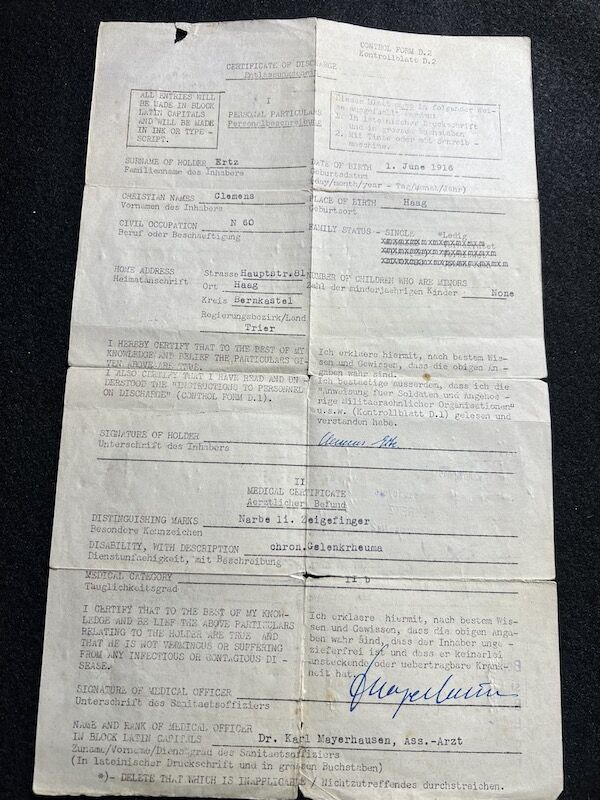 CONTROL FORM D.2
Kontrollblatt D.2
CERTIFICATE OF DISCHARGE
Entlassungsschein
ALL ENTRIES WILL
BE MADE IN BLOCK
LATIN CAPITALS
AND WILL BE MADE
IN INK OR TYPE-
SCRIPT.
I
PERSONAL PARTICULARS
Personalbeschreibung
in folgender Wei-
1. In lateinischer Druckschrift
und in grossen Buchstaben
2. Mit Tinte oder mit Schreib-
maschine.
SURNAME OF HOLDER Ertz
Familienname des Inhabers
DATE OF BIRTH 1. June 1916
Geburtsdatum
(day/month/year - Tag/Monat/Jahr)
CHRISTIAN NAMES Clemens
Vornamen des Inhabers
PLACE OF BIRTH Haag
Geburtsort
CIVIL OCCUPATION N 60
Beruf oder Beschaeftigung
FAMILY STATUS - SINGLE *Ledig
HOME ADDRESS Strasse Hauptstr.81
Heimatanschrift Ort Haag
Kreis Bernkastel
Regierungsbezirk/Land
Trier
NUMBER OF CHILDREN WHO ARE MINORS
Zahl der minderjaehrigen Kinder - None
I HEREBY CERTIFY THAT TO THE BEST OF MY
KNOWLEDGE AND BELIEF THE PARTICULARS GI-
VEN ABOVE ARE TRUE.
I ALSO CERTIFY THAT I HAVE READ AND UN-
DERSTOOD THE "INSTRUCTIONS TO PERSONNEL
ON DISCHARGE" (CONTROL FORM D.1).
Ich erklaere hiermit, nach bestem Wis-
sen und Gewissen, dass die obigen An-
gaben wahr sind.
Ich bestaetige ausserdem, dass ich die
"Anweisung fuer Soldaten und Angehoe-
rige Militaeraehnlicher Organisationen"
u.s.w. (Kontrollblatt D.1) gelesen und
verstanden habe.
SIGNATURE OF HOLDER Clemens Ertz
Unterschrift des Inhabers
II
MEDICAL CERTIFICATE
Aerztlicher Befund
DISTINGUISHING MARKS Narbe li. Zeigefinger
Besondere Kennzeichen
DISABILITY, WITH DESCRIPTION chron.Gelenkrheuma
Dienstunfaehigkeit, mit Beschreibung
MEDICAL CATEGORY II b
Tauglichkeitsgrad
I CERTIFY THAT TO THE BEST OF MY KNOW-
LEDGE AND BE LIEF THE ABOVE PARTICULARS
RELATING TO THE HOLDER ARE TRUE AND
THAT HE IS NOT VERMINOUS OR SUFFERING
FROM ANY INFECTIOUS OR CONTAGIOUS DI -
SEASE.
Ich erklaere hiermit, nach bestem Wis-
sen und Gewissen, dass die obigen Anga-
ben wahr sind, dass der Inhaber unge -
zieferfrei ist und dass er keinerlei
ansteckende oder uebertragbare Krank-
heit hat.
SIGNATURE OF MEDICAL OFFICER
Unterschrift des Sanitaetsoffiziers
NAME AND RANK OF MEDICAL OFFICER
IN BLOCK LATIN CAPITALS Dr. Karl Mayerhausen, Ass.-Arzt
Zuname/Vorname/Dienstgrad des Sanitaetsoffiziers
(In lateinischer Druckschrift und in grossen Buchstaben)
*)- DELETE THAT WHICH IS INAPPLICABLE / Nichtzutreffendes durchstreichen.